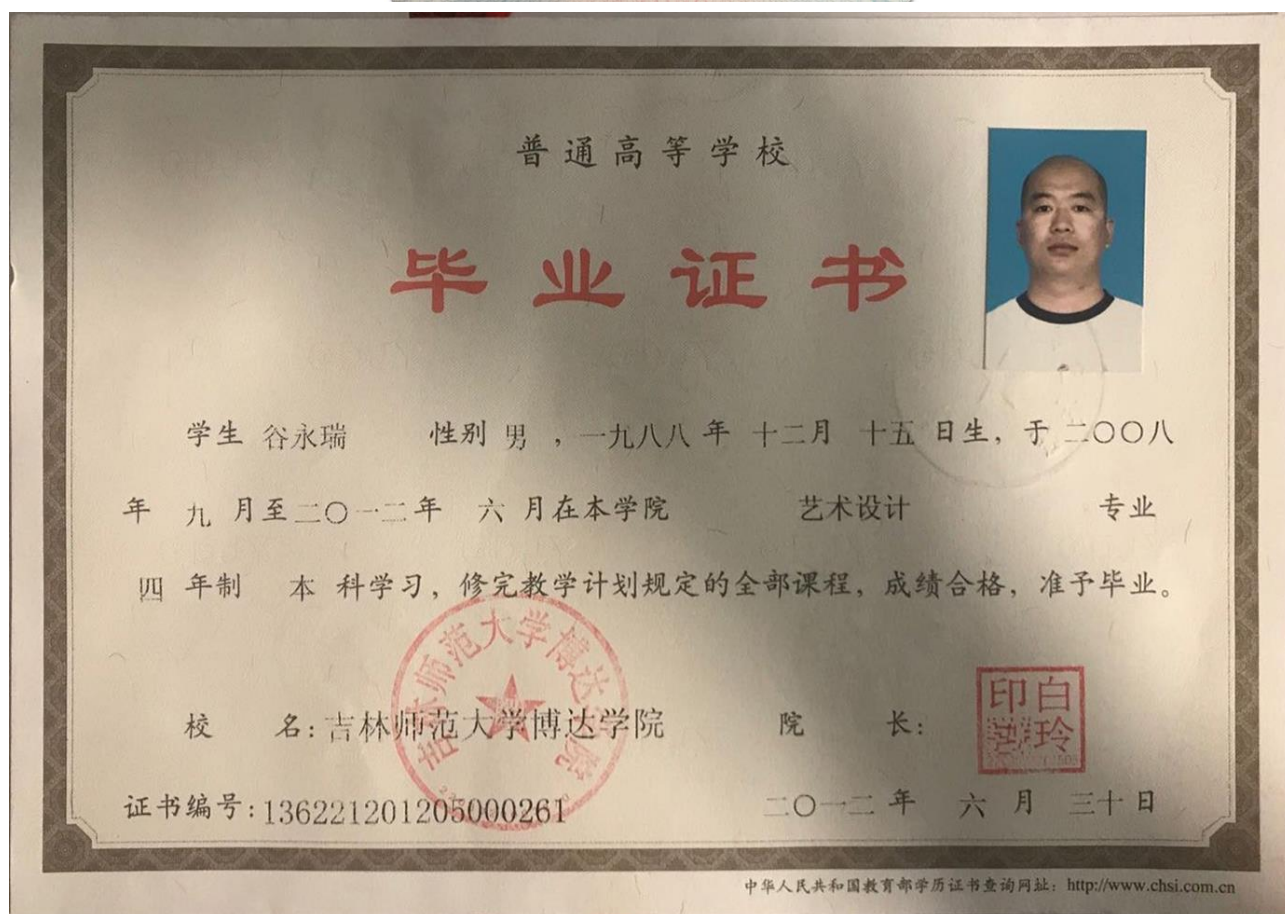 普通高等学校
毕业证书
学生 谷永瑞 性别 男 ，一九八八 年 十二月 十五 日生，于 二〇〇八
年 九 月至二〇一二年 六 月在本学院 艺术设计 专业
四 年制 本 科学习，修完教学计划规定的全部课程，成绩合格，准予毕业。
吉林师范大学博达学院
校 名：吉林师范大学博达学院 院 长：
白玲
印
证书编号：136221201205000261 二〇一二 年 六 月 三十 日
中华人民共和国教育部学历证书查询网址：http://www.chsi.com.cn